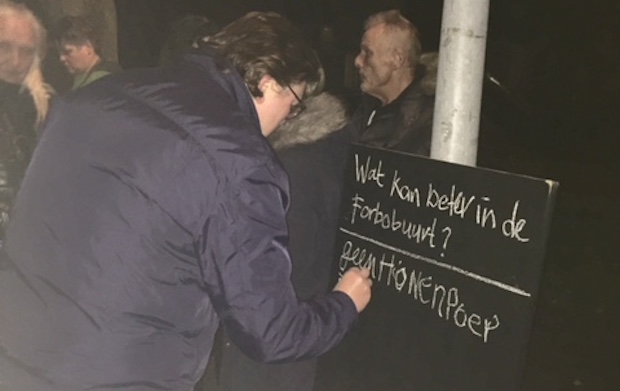 Wat kan beter in de
Forbobuurt?
geen HONENPOEP